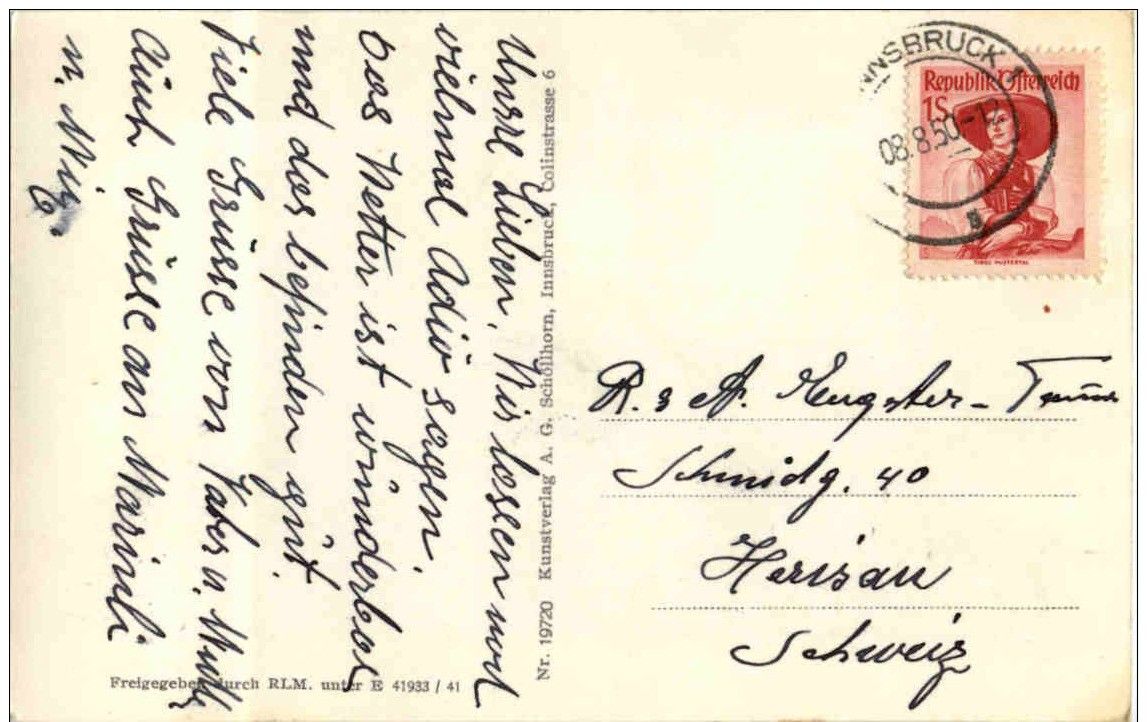 Unsre Lieben. Wir lassen noch
vielmal Adio sagen.
Das Wetter ist wunderbar
und das befinden gut.
Viele Grüsse von Vater u. Mutter
Auch Grüsse an Marieli
u.
Nr. 19720 Kunstverlag A. G. Schöllhorn, Innsbruck, Colinstrasse 6
Freigegeben durch RLM. unter E 41933 / 41
INNSBRUCK 1
08.8.50-12
a
Republik Österreich
1S
TIROL PUSTERTAL
R. & A. Eugster-
Schmidg. 40
Herisau
Schweiz